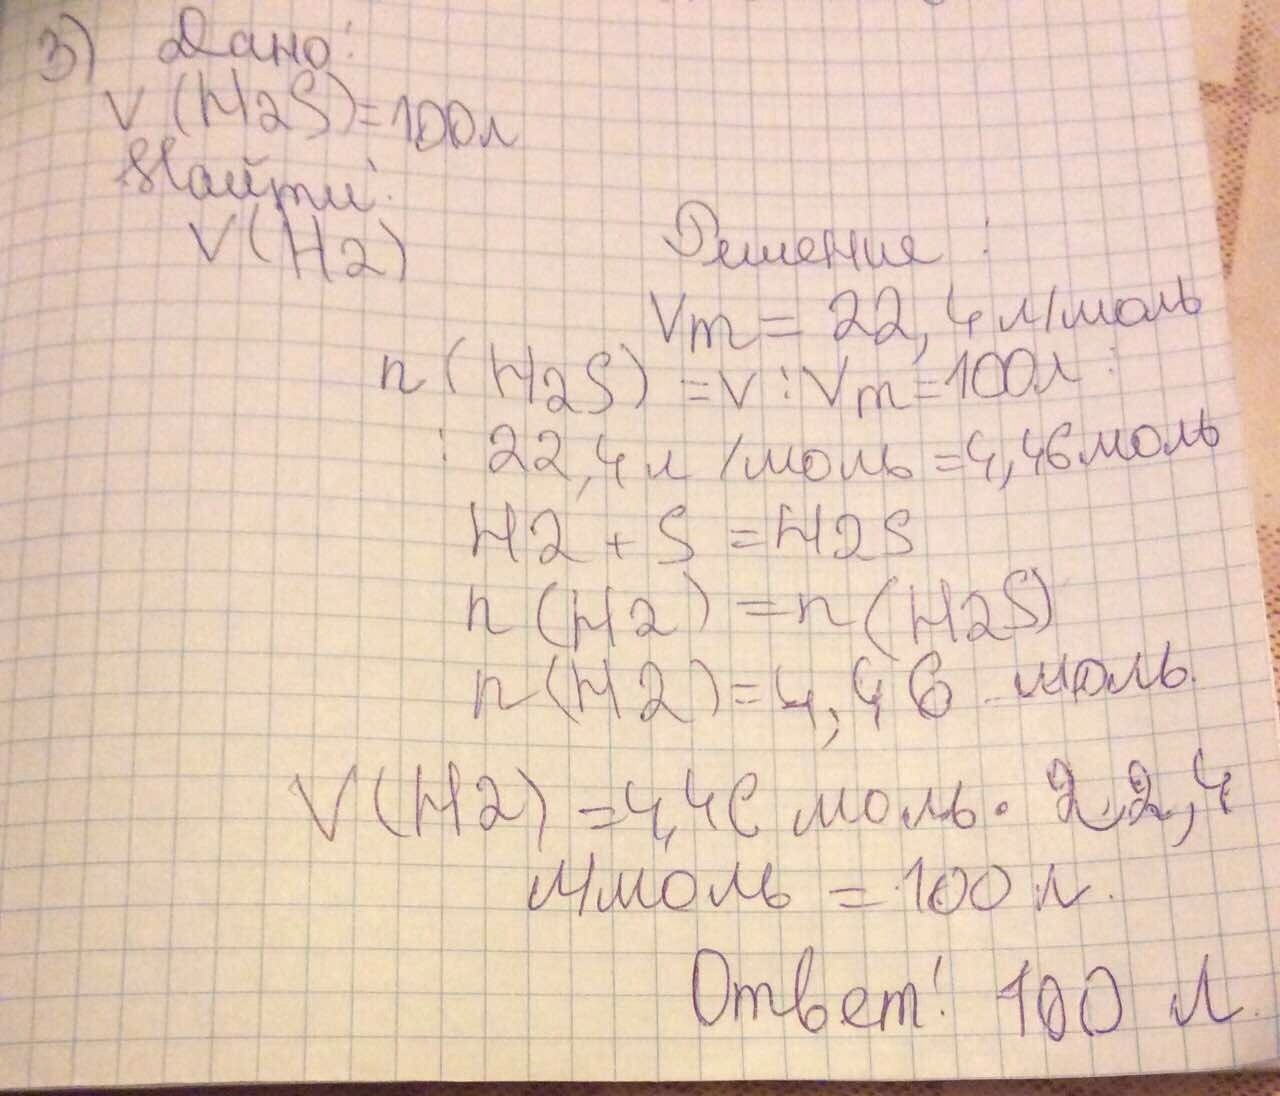 3) Дано:
V (H2S) = 100л
Найти:
V(H2)
Решение :
Vm = 22,4 л/моль
n (H2S) = V : Vm = 100л :
: 22,4 л /моль = 4,46 моль
H2 + S = H2S
n (H2) = n (H2S)
n (H2) = 4,46 моль.
V(H2) = 4,46 моль · 22,4
л/моль = 100 л.
Ответ: 100 л.